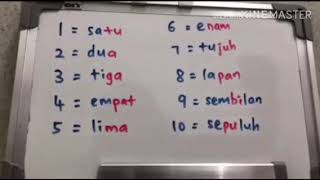 1 = satu
2 = dua
3 = tiga
4 = empat
5 = lima
6 = enam
7 = tujuh
8 = lapan
9 = sembilan
10 = sepuluh
KINEMASTER